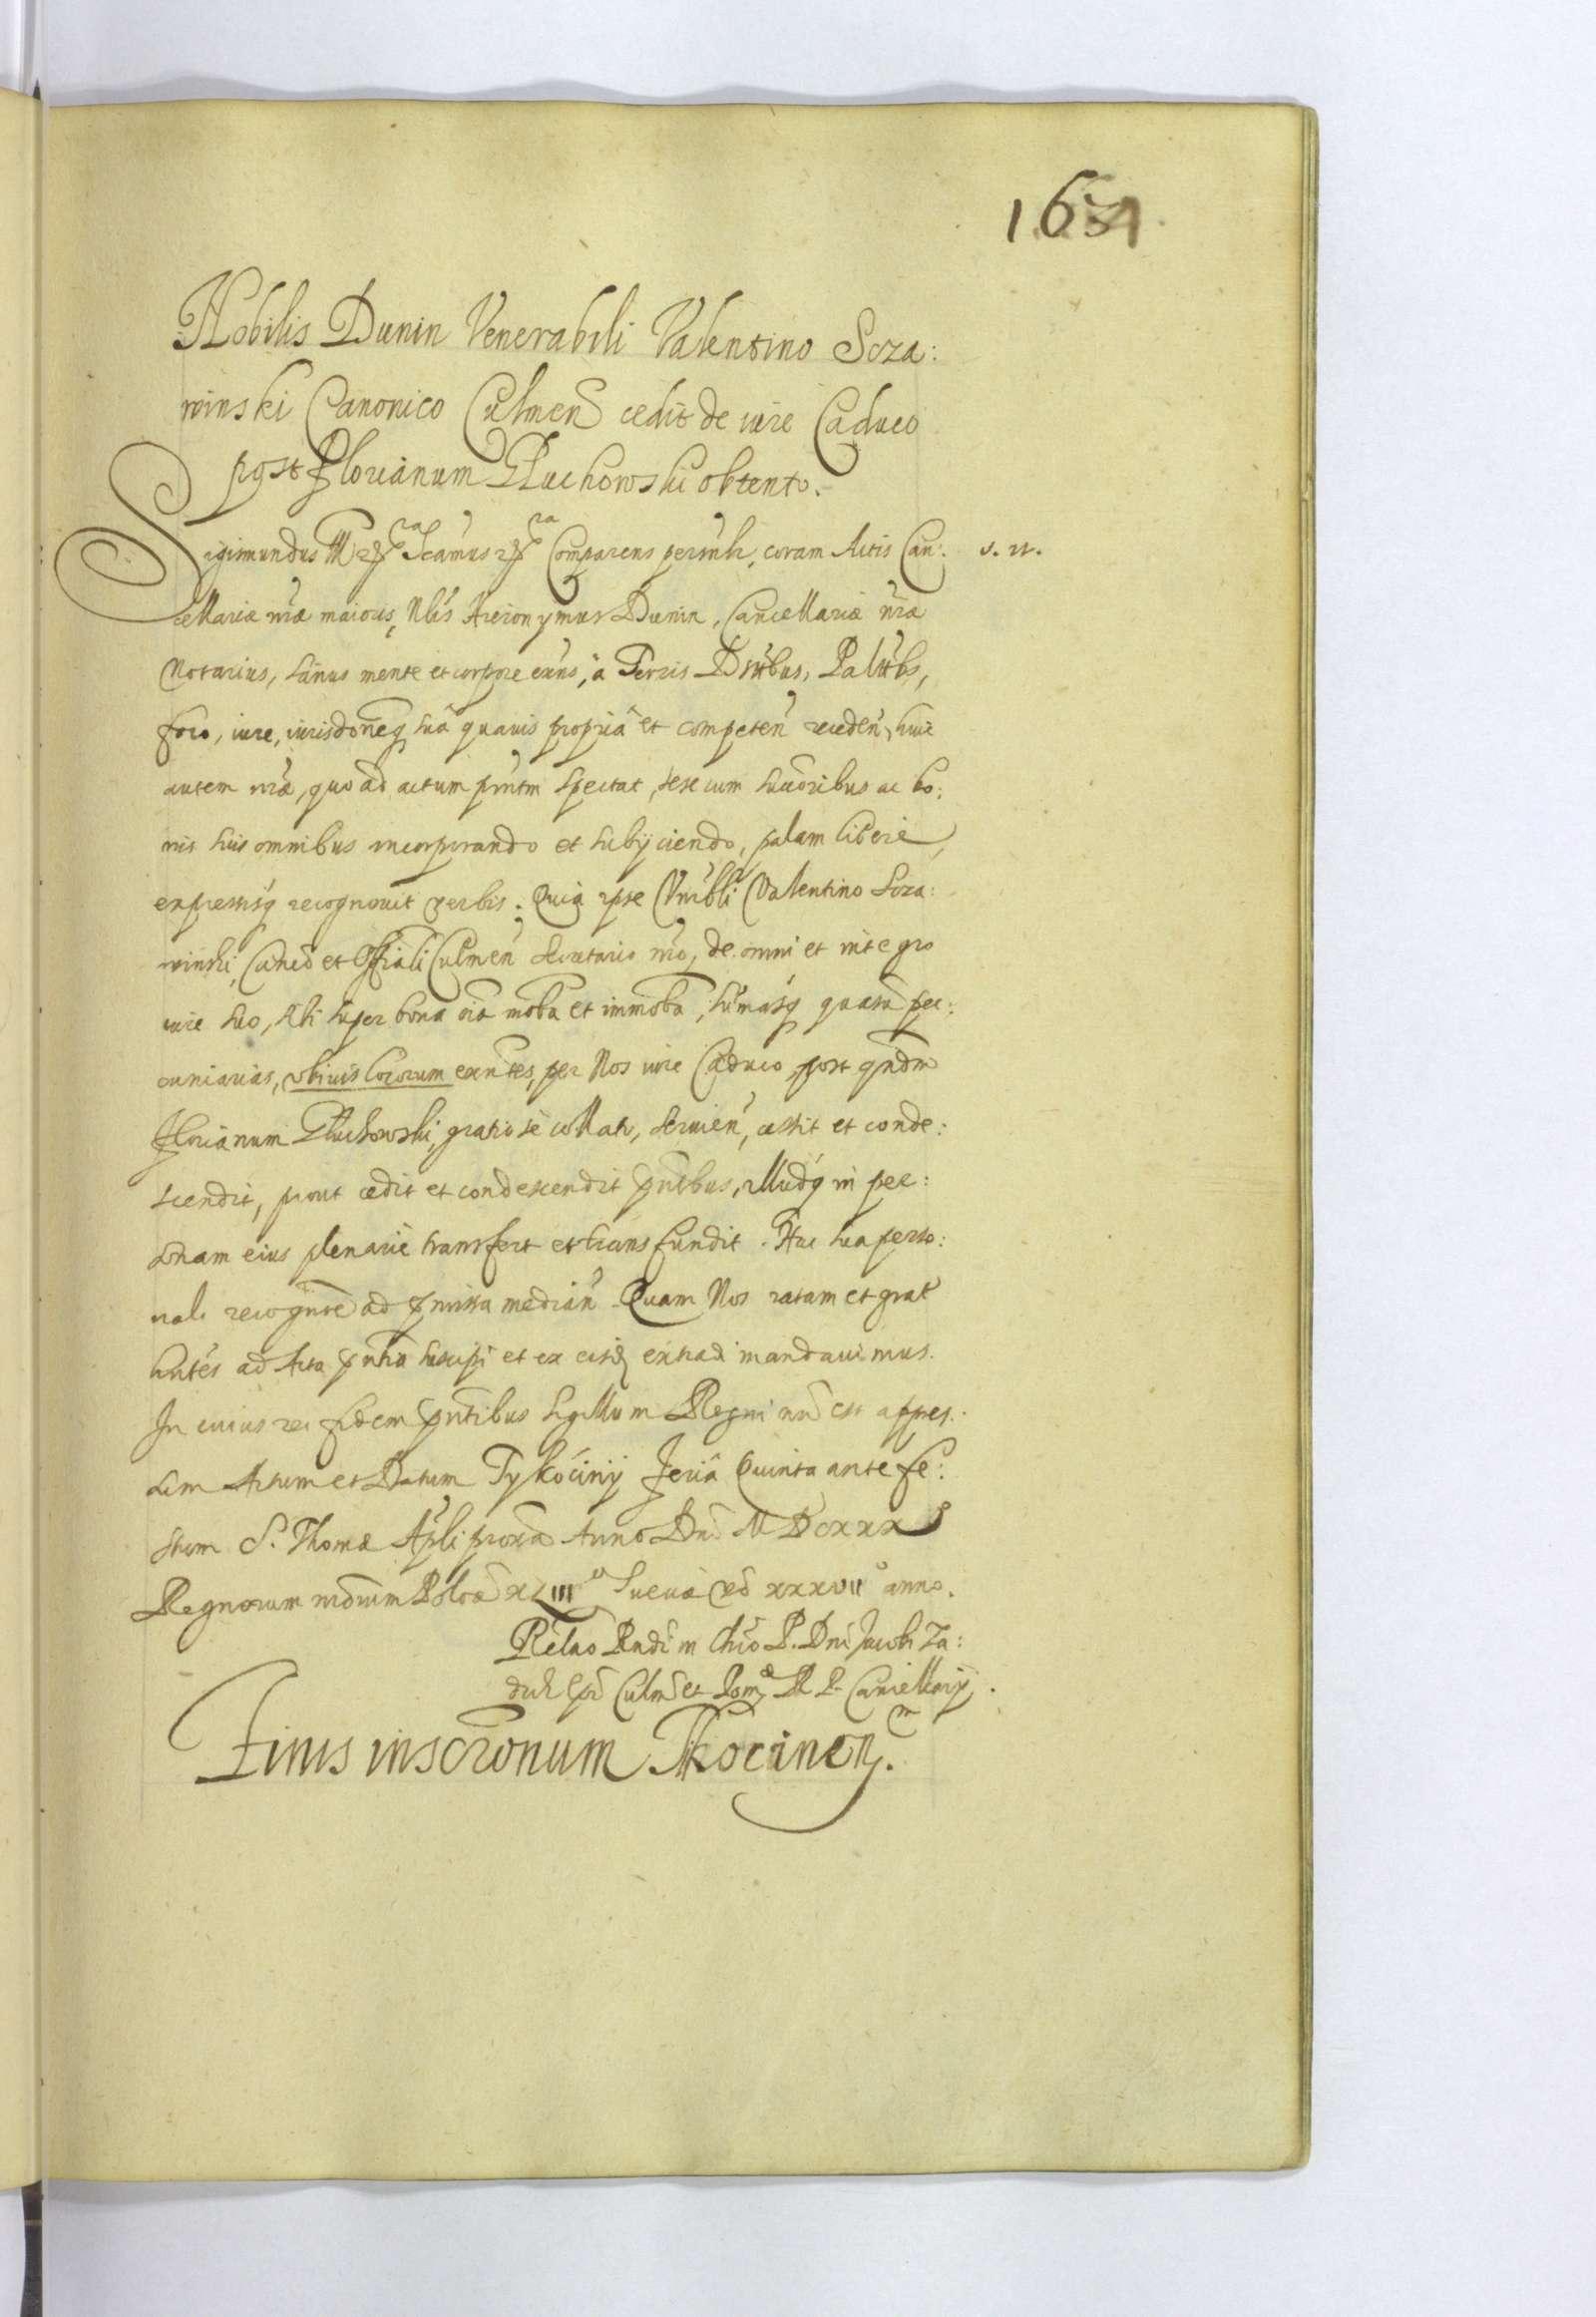 1631.
Nobilis Dunin Venerabili Valentino Scza:
winski Canonico Culmen̄ cedit de iure Caduco
post Florianum Głuchowski obtento.
Sigimundus III etc. Scimus etc. Comparens persnlr, coram Actis Can: s. n.
cellariæ nr̄æ maioris, Nblis Hieronymus Dunin, Cancellariæ nr̄æ
Notarius, sanus mente et corpore exn̄s, à Terris Distbus, Palatbs,
foro, iure, iurisdoneq̃ suâ quavis propriâ et competen̄ receden̄, huic
autem nr̄æ, quo ad actum pn̄tm spectat, sese cum succoribus ac bo:
nis suis omnibus incorporando et subijciendo, palam liberè,
expressisq̃ recognovit verbis. Quia ipse Vnrbli Valentino Scza:
winski, Canco et Offiali Culmen̄ Secretario nr̄o, de omni et integro
iure suo, sibi super bona oīa moba et immoba, sum̄asq̃ quasuis pec:
cuniarias, vbiuis locorum exn̄tes, per Nos iure Caduco post qndm
Florianum Głuchowski, gratiosè collato, seruien̄, cessit et conde:
scendit, prout cedit et condescendit pn̄tibus, illudq̃ in per:
sonam eius plenariè transfert et transfundit. Hac sua perso:
nali recognitne ad pmissa median̄. Quam Nos ratam et grat̄
hntes ad Acta pn̄tia suscipi et ex eisd extradi mandauimus.
In cuius rei fidem pn̄tibus sigillum Regni nr̄i est appres:
sum Actum et Datum Tykocinij Feriâ Quinta ante fe:
stum S. Thomæ Apli proxa Anno Dni MDCXXX
Regnorum nrorum Polo͞æ XLIII Sueciæ vo XXXVII anno.
Relao Rndi in Chro P. Dni Jacobi Za:
dzik Epi Culmen̄ et Pom. R. P. Cancellarij.
Finis inscronum Tkocinen.